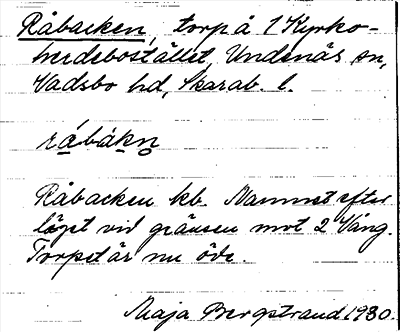 Råbacken, torp å 1 Kyrko-
herdebostället, Undenäs sn,
Vadsbo hd, Skarab. l.
råbákn
Råbacken kb. Namnet efter
läget vid gränsen mot 2 Väng.
Torpet är nu öde.
Maja Bergstrand 1930.